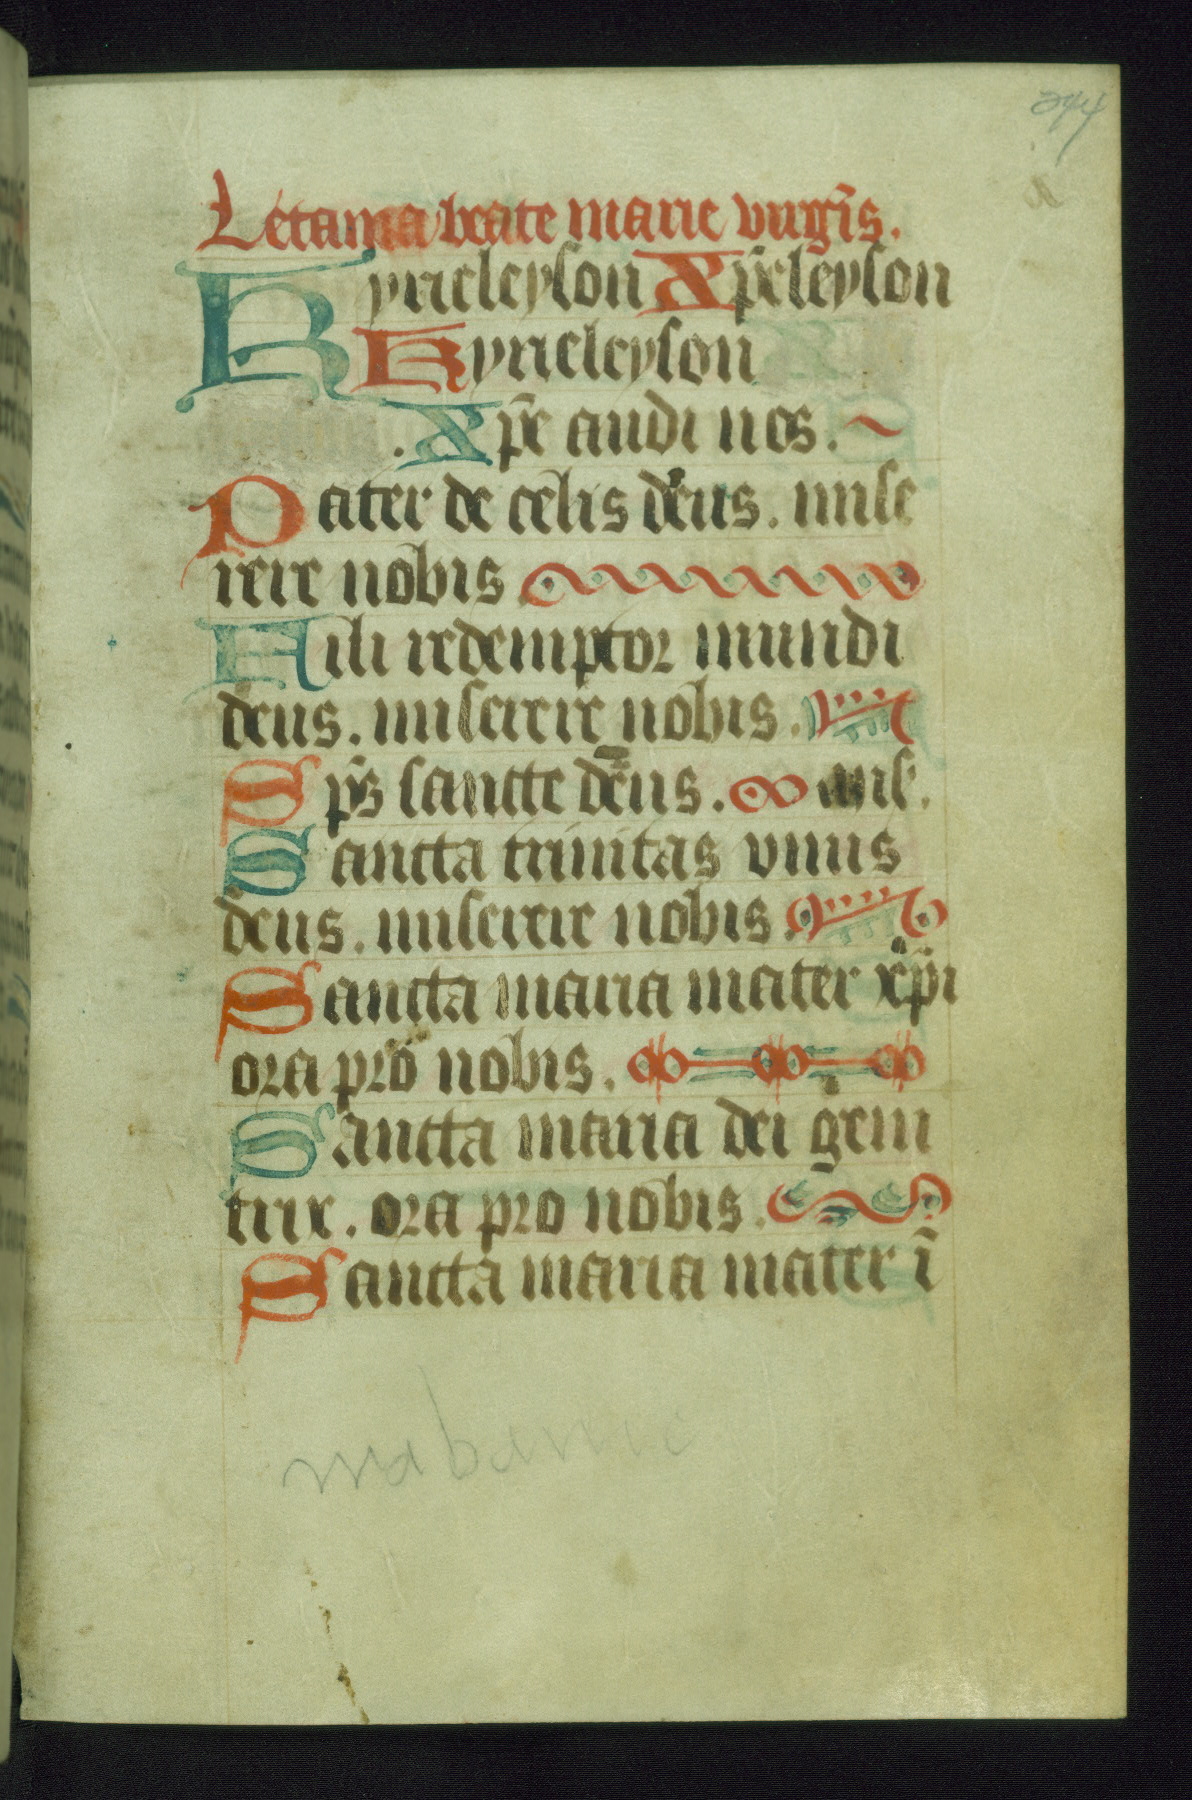 Letania beate marie virgĩs.
Kyrieleyson Xp̃eleyson
Kyrieleyson
. Xp̃e audi nos.
Pater de celis deus. mise
rere nobis
Fili redemptor mundi
deus. miserere nobis.
Sp̃s sancte deus. mis'.
Sancta trinitas vnus
deus. miserere nobis.
Sancta maria mater xp̃i
ora pro nobis.
Sancta maria dei geni
trix. ora pro nobis.
Sancta maria mater ĩ